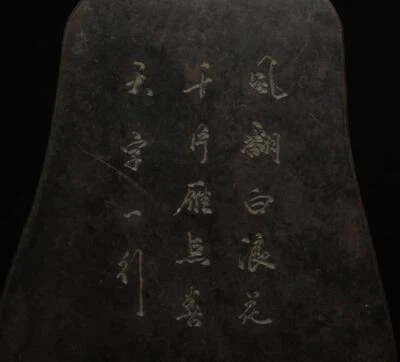 風翻白浪花
千片雁点喜
天字一行